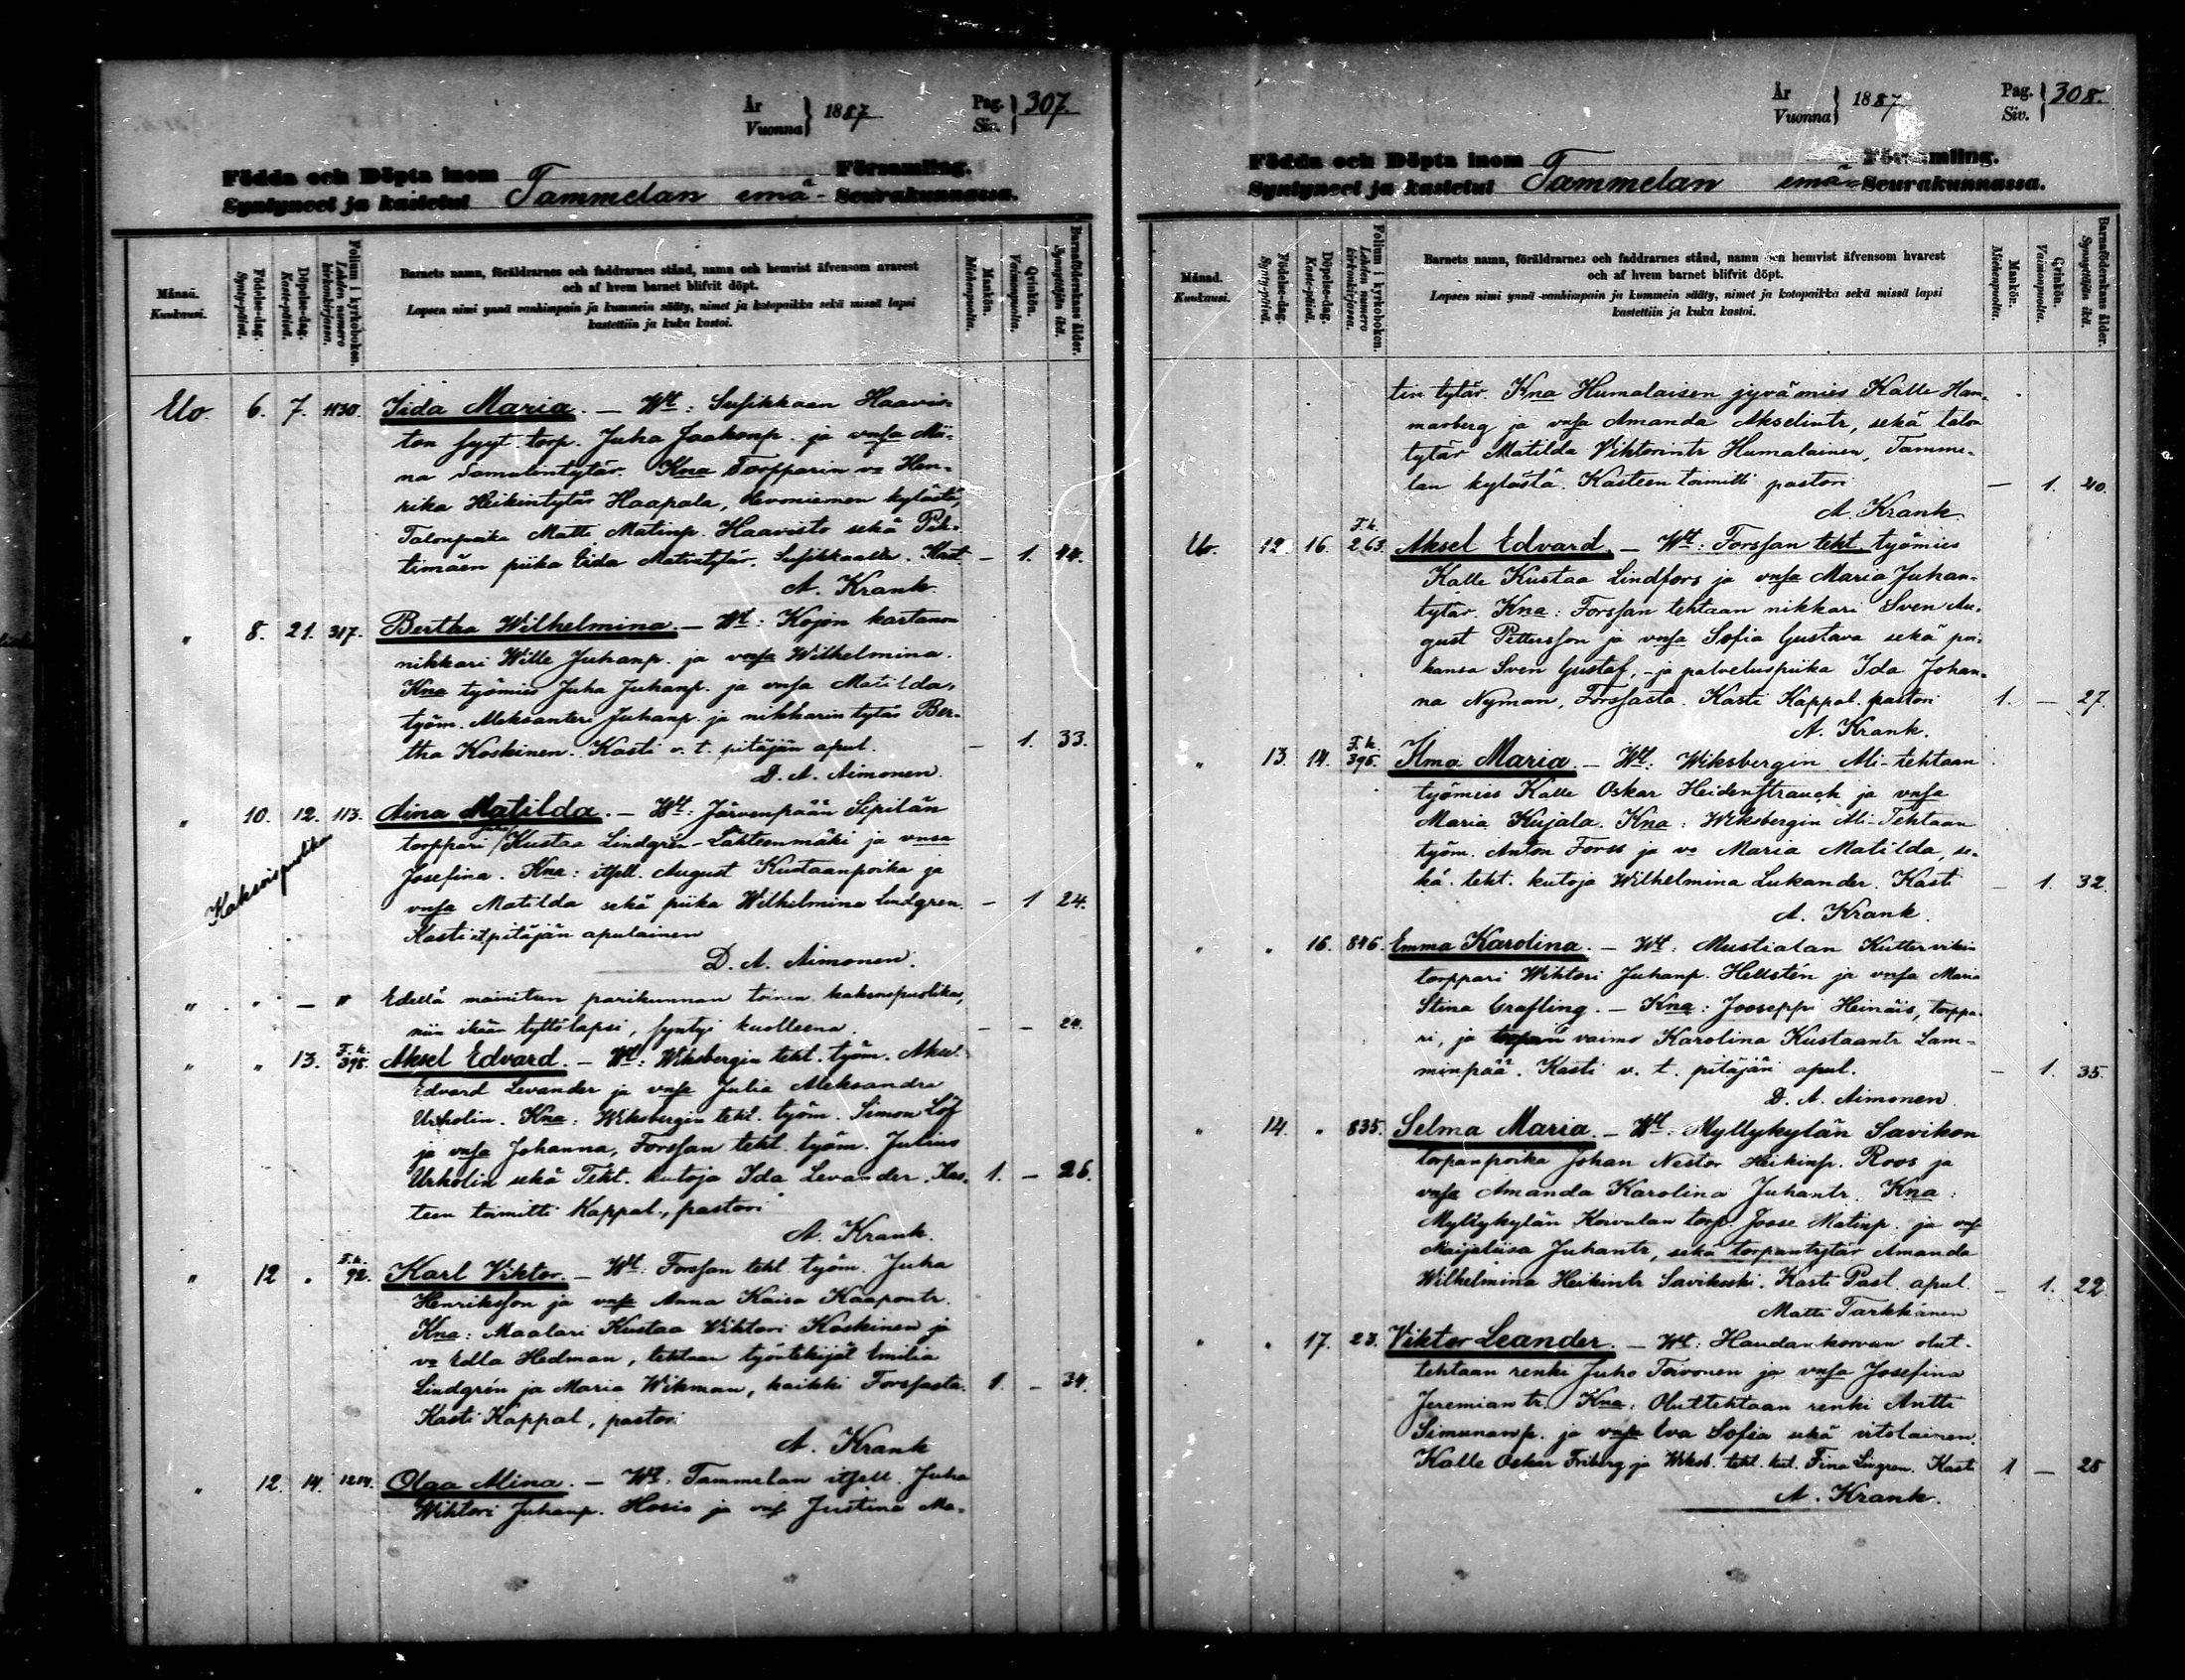 År
Vuonna } 1887
Pag.
Siv. } 307.
Födda och Döpta inom Församling.
Syntyneet ja kastetut Tammelan emä- Seurakunnassa.
Månad.
Kuukausi.
Födelse-dag.
Synty-päivä.
Döpelse-dag.
Kaste-päivä.
Folium i kyrkoboken.
Lehden numero kirkonkirjassa.
Barnets namn, föräldrarnes och faddrarnes stånd, namn och hemvist äfvensom hvarest
och af hvem barnet blifvit döpt.
Lapsen nimi ynnä vanhimpain ja kummein sääty, nimet ja kotopaikka sekä missä lapsi
kastettiin ja kuka kastoi.
Mankön.
Miehenpuolta.
Qvinkön.
Vaimonpuolta.
Barnaföderskans ålder.
Synnyttäjän ikä.
Elo. 6. 7. 1130. Iida Maria. — Wt: Susikkaan Haavis-
ton syyt. torp. Juha Jaakonp. ja vnsa Mii-
na Samulintytär. Kna Torpparin vo Hen-
rika Heikintytär Haapala, Hevoniemen kylästä,
Talonpoika Matti Matinp. Haavisto sekä
timäen piika Eida Matintytär, Susikkaalta. Kast. — 1. 44.
A. Krank.
" 8. 21. 317. Bertha Wilhelmina. — Wt: Kojon kartanon
nikkari Wille Juhanp. ja vnsa Wilhelmina.
Kna työmies Juha Juhanp. ja vnsa Matilda,
työm. Aleksanteri Juhanp. ja nikkarin tytär Ber-
tha Koskinen. Kasti v. t. pitäjän apul. — 1. 33.
D. A. Aimonen.
" 10. 12. 113. Aina Matilda. — Wt: Järvenpään Sipilän
torppari Kustaa Lindgrén-Lähteenmäki ja vnsa
Kaksoispuolikas
Josefina. Kna: itsell. August Kustaanpoika ja
vnsa Matilda sekä piika Wilhelmina Lindgren. — 1 24.
Kasti pitäjän apulainen
D. A. Aimonen.
" " — " Edellä mainitun parikunnan toinen kaksospuolikas,
niin ikään tyttölapsi, syntyi kuolleena. — — 24.
" " 13. T.k. 395. Aksel Edvard. — Wt: Wiksbergin teht. työm. Aksel
Edvard Levander ja vnsa Julia Aleksandra
Urholin. Kna: Wiksbergin teht. työm. Simon Löf
ja vnsa Johanna, Forssan teht. työm. Julius
Urholin sekä Teht. kutoja Ida Levander. Kas- 1. — 26.
teen toimitti Kappal. pastori
A. Krank.
" 12 " T.k. 92. Karl Viktor. — Wt: Forssan teht. työm. Juha
Henriksson ja vnsa Anna Kaisa Kaapontr.
Kna: Maalari Kustaa Wihtori Koskinen ja
vo Edla Hedman, tehtaan työntekijät Emilia
Lindgrén ja Maria Wikman, kaikki Forssasta. 1. — 34.
Kasti Kappal, pastori
A. Krank
" 12. 14. 1214. Olga Mina. — Wt. Tammelan itsell. Juha
Wihtori Juhanp. Hosio ja vnsa Justina Ma-
År
Vuonna } 1887
Pag.
Siv. } 308.
Födda och Döpta inom Församling.
Syntyneet ja kastetut Tammelan emä- Seurakunnassa.
Månad.
Kuukausi.
Födelse-dag.
Synty-päivä.
Döpelse-dag.
Kaste-päivä.
Folium i kyrkoboken.
Lehden numero kirkonkirjassa.
Barnets namn, föräldrarnes och faddrarnes stånd, namn och hemvist äfvensom hvarest
och af hvem barnet blifvit döpt.
Lapsen nimi ynnä vanhimpain ja kummein sääty, nimet ja kotopaikka sekä missä lapsi
kastettiin ja kuka kastoi.
Mankön.
Miehenpuolta.
Qvinkön.
Vaimonpuolta.
Barnaföderskans ålder.
Synnyttäjän ikä.
tin tytär. Kna Humalaisen jyvämies Kalle Ham-
marberg ja vnsa Amanda Akselintr, sekä talon
tytär Matilda Vihtorintr Humalainen, Tamme-
lan kylästä. Kasteen toimitti pastori — 1. 40.
A. Krank.
Elo. 12 16. T.k. 263. Aksel Edvard. — Wt: Forssan teht. työmies
Kalle Kustaa Lindfors ja vnsa Maria Juhan-
tytär. Kna: Forssan tehtaan nikkari Sven Au-
gust Pettersson ja vnsa Sofia Gustava sekä poi-
kansa Sven Gustaf, ja palveluspiika Ida Johan-
na Nyman, Forssasta. Kasti Kappal. pastori 1. — 27.
A. Krank.
" 13. 14. T.k. 395. Ilma Maria. — Wt: Wiksbergin Ali-tehtaan
työmies Kalle Oskar Heidenstrauch ja vnsa
Maria Kujala. Kna: Wiksbergin Ali-Tehtaan
työm. Anton Forss ja vo Maria Matilda, se-
kä teht. kutoja Wilhelmina Lukander. Kasti — 1. 32.
A. Krank.
" " 16. 846. Emma Karolina. — Wt: Mustialan Kuttervikin
torppari Wihtori Juhanp. Hellstén ja vnsa Maria
Stina Grafling. — Kna: Jooseppi Heinäis, torppa-
ri, ja vaimo Karolina Kustaantr Lam-
minpää. Kasti v. t. pitäjän apul. — 1. 35.
D. A. Aimonen
" 14. " 835. Selma Maria. — Wt. Myllykylän Savikon
torpanpoika Johan Nestor Heikinp. Roos ja
vnsa Amanda Karolina Juhantr. Kna:
Myllykylän Koivulan torp. Joose Matinp. ja vnsa
Maijaliisa Juhantr, sekä torpantytär Amanda
Wilhelmina Heikintr Savikoski. Kasti Past. apul. — 1. 22
Matti Tarkkanen
" " 17. 23. Viktor Leander. — Wt: Haudankorvan olut-
tehtaan renki Juho Toivonen ja vnsa Josefina
Jeremiantr. Kna: Oluttehtaan renki Antti
Simunanp. ja vnsa Eva Sofia sekä vitolainen.
Kalle Oskar Friberg ja Wiksb. teht. kut. Fina Lingren. Kasti 1 — 25
A. Krank.